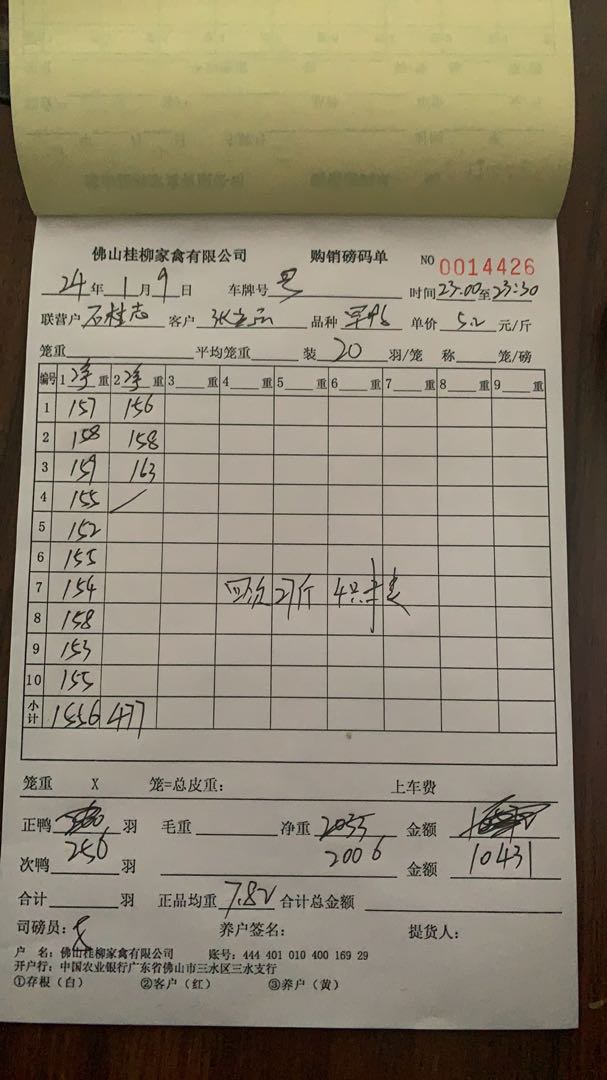 佛山桂柳家禽有限公司 购销磅码单 NO 0014426
24年1月9日 车牌号 时间23:00至23:30
联营户石桂志 客户 品种 单价5.2元/斤
笼重 平均笼重 装20羽/笼 称 笼/磅
编号 1净重 2净重 3 重 4 重 5 重 6 重 7 重 8 重 9 重
1 157 156
2 158 158
3 159 163
4 155
5 152
6 155
7 154 四次27斤 4只
8 158
9 153
10 155
小计 1556 477
笼重 X 笼=总皮重: 上车费
正鸭 羽 毛重 净重2033 金额
256 2006 10431
次鸭 羽 金额
合计 羽 正品均重7.82 合计总金额
司磅员: 养户签名: 提货人:
户 名: 佛山桂柳家禽有限公司 账号: 444 401 010 400 169 29
开户行: 中国农业银行广东省佛山市三水区三水支行
①存根(白) ②客户(红) ③养户(黄)